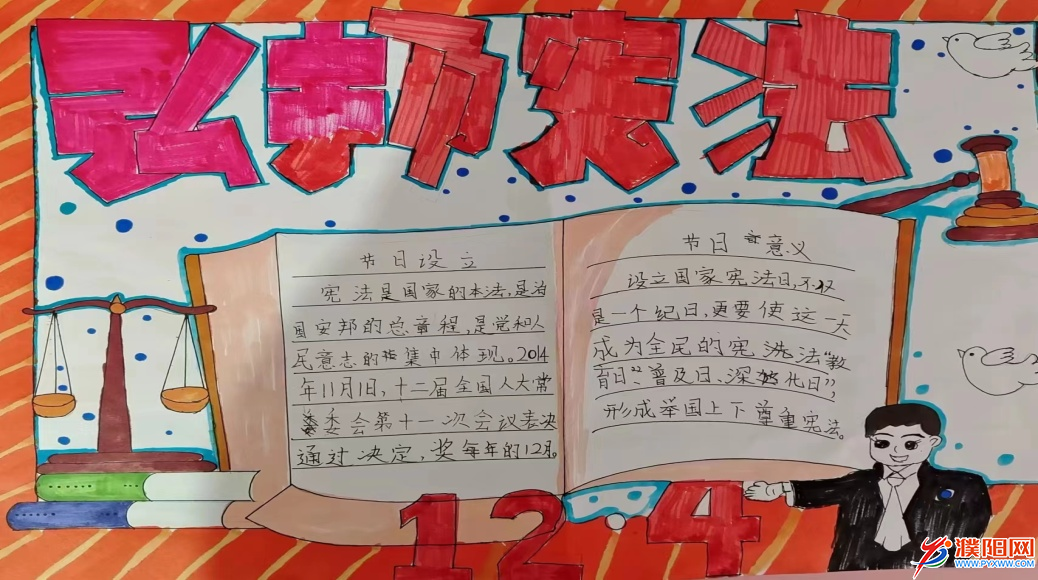 弘扬宪法
节日设立
宪法是国家的本法,是治
国安邦的总章程,是党和人
民意志的集中体现。2014
年11月1日,十二届全国人大常
委会第十一次会议表决
通过决定,奖每年的12月。
节日意义
设立国家宪法日,不仅
是一个纪日,更要使这一天
成为全民的宪法“教
育日”、普及日、深化日”,
形成举国上下尊重宪法。
12·4
濮阳网
WWW.PYXWW.COM